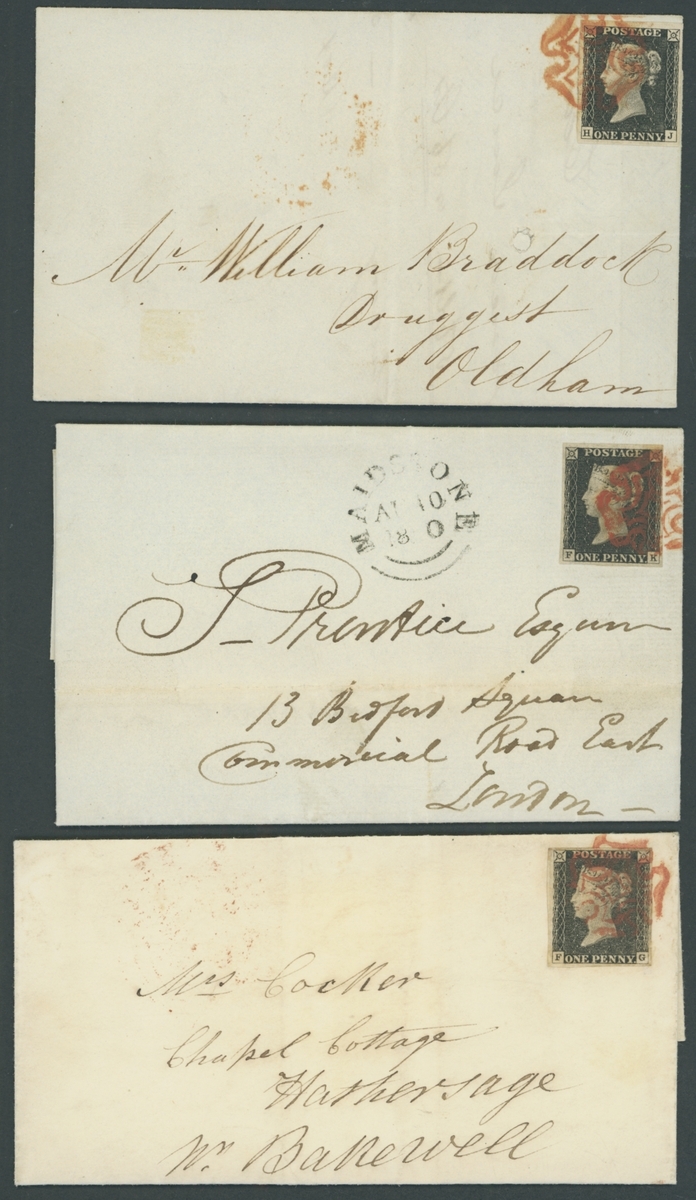 POSTAGE
H J
ONE PENNY
Mr. William Braddock
Druggest
Oldham
POSTAGE
F K
ONE PENNY
MAIDSTONE
10
18 0
Prentice Esquire
13 Bedford Square
Commercial Road East
London
POSTAGE
F G
ONE PENNY
Mrs Cocker
Chapel Cottage
Hathersage
Nr. Bakewell